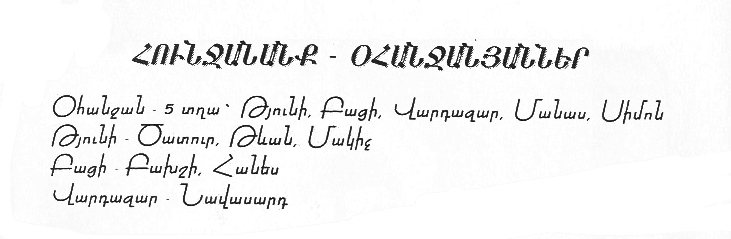 ՀՈՒՆՋԱՆԱՆՔ - ՕՀԱՆՋԱՆՅԱՆՆԵՐ
Օհանջան - 5 տղա՝ Թյունի, Բացի, Վարդազար, Մանաս, Սիմոն
Թյունի - Ծատուր, Թևան, Մակիչ
Բացի - Բախշի, Հանես
Վարդազար - Նավասարդ